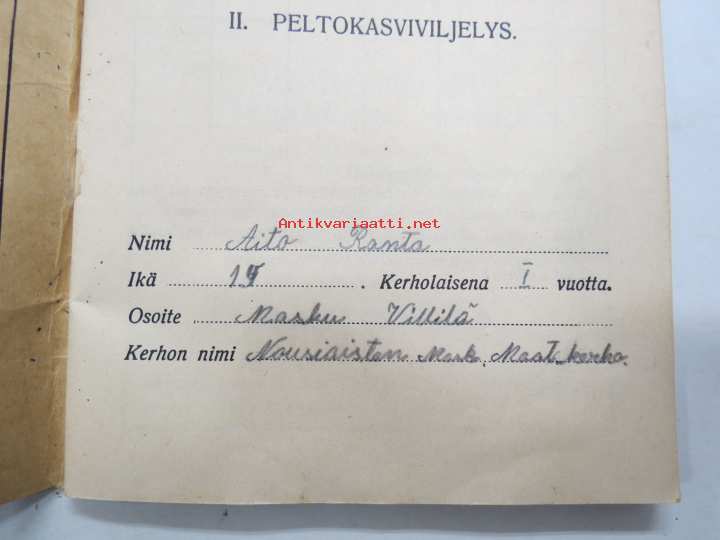 II. PELTOKASVIVILJELYS.
Antikvariaatti.net
Nimi Aito Ranta
Ikä 14. Kerholaisena I vuotta.
Osoite Masku Villilä
Kerhon nimi Nousiaisten Mask. Maat. kerho.